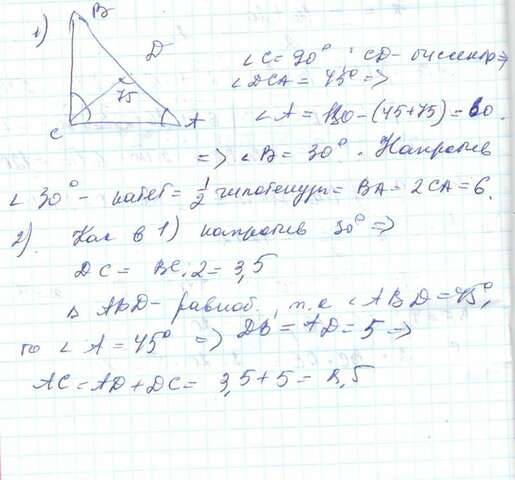 1)
B
D
75
C
A
∠C = 90° ; CD - биссектр ⇒
∠DCA = 45° ⇒
∠A = 180 - (45+75) = 60.
⇒ ∠B = 30°. Напротив
∠30° - катет = 1/2 гипотенузы = BA = 2CA = 6.
2). Как в 1) напротив 30° ⇒
DC = BC:2 = 3,5
Δ ABD - равноб., т.к ∠ABD = 45°,
то ∠A = 45° ⇒ DB = AD = 5 ⇒
AC = AD + DC = 3,5 + 5 = 8,5